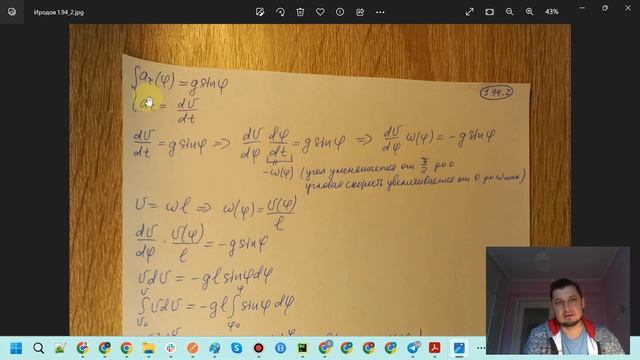 Иродов 1.94_2.jpg
43%
1.94_2
a_τ(φ) = g sinφ
a_τ = dv/dt
dv/dt = g sinφ => dv/dφ dφ/dt = g sinφ => dv/dφ ω(φ) = -g sinφ
-ω(φ) (угол уменьшается от π/2 до 0
угловая скорость увеличивается от 0 до ω max)
v = ωl => ω(φ) = v(φ)/l
dv/dφ · v(φ)/l = -g sinφ
vdv = -gl sinφdφ
∫_{v₀}^{v} vdv = -gl ∫_{φ₀}^{φ} sinφ dφ